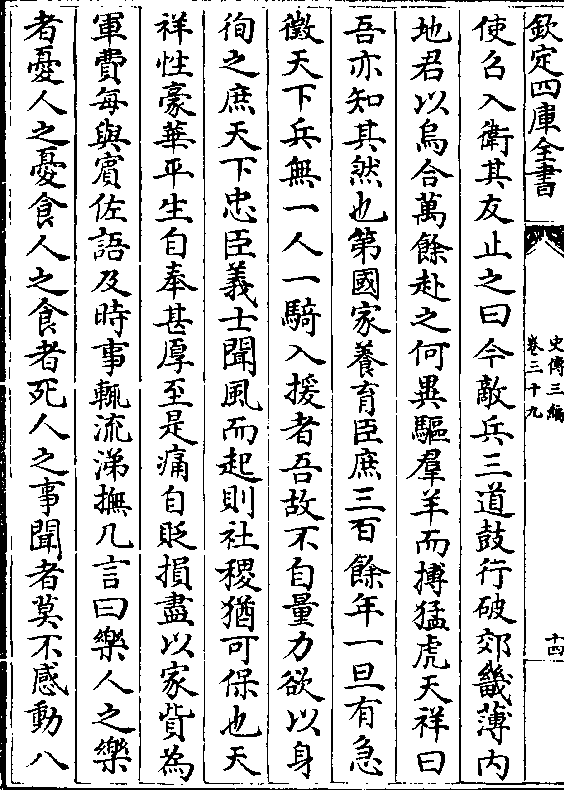 欽定四庫全書
史傳三編
卷三十九
十四
使召入衛其友止之曰今敵兵三道鼓行破郊畿薄内
地君以烏合萬餘赴之何異驅羣羊而搏猛虎天祥曰
吾亦知其然也第國家養育臣庶三百餘年一旦有急
徵天下兵無一人一騎入援者吾故不自量力欲以身
徇之庶天下忠臣義士聞風而起則社稷猶可保也天
祥性豪華平生自奉甚厚至是痛自貶損盡以家貲為
軍費每與賔佐語及時事輒流涕撫几言曰樂人之樂
者憂人之憂食人之食者死人之事聞者莫不感動八